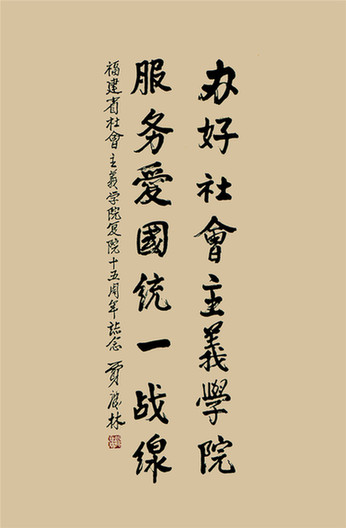 办好社會主義学院
服务愛國统一战線
福建省社會主義学院复院十五周年誌念 贾庆林